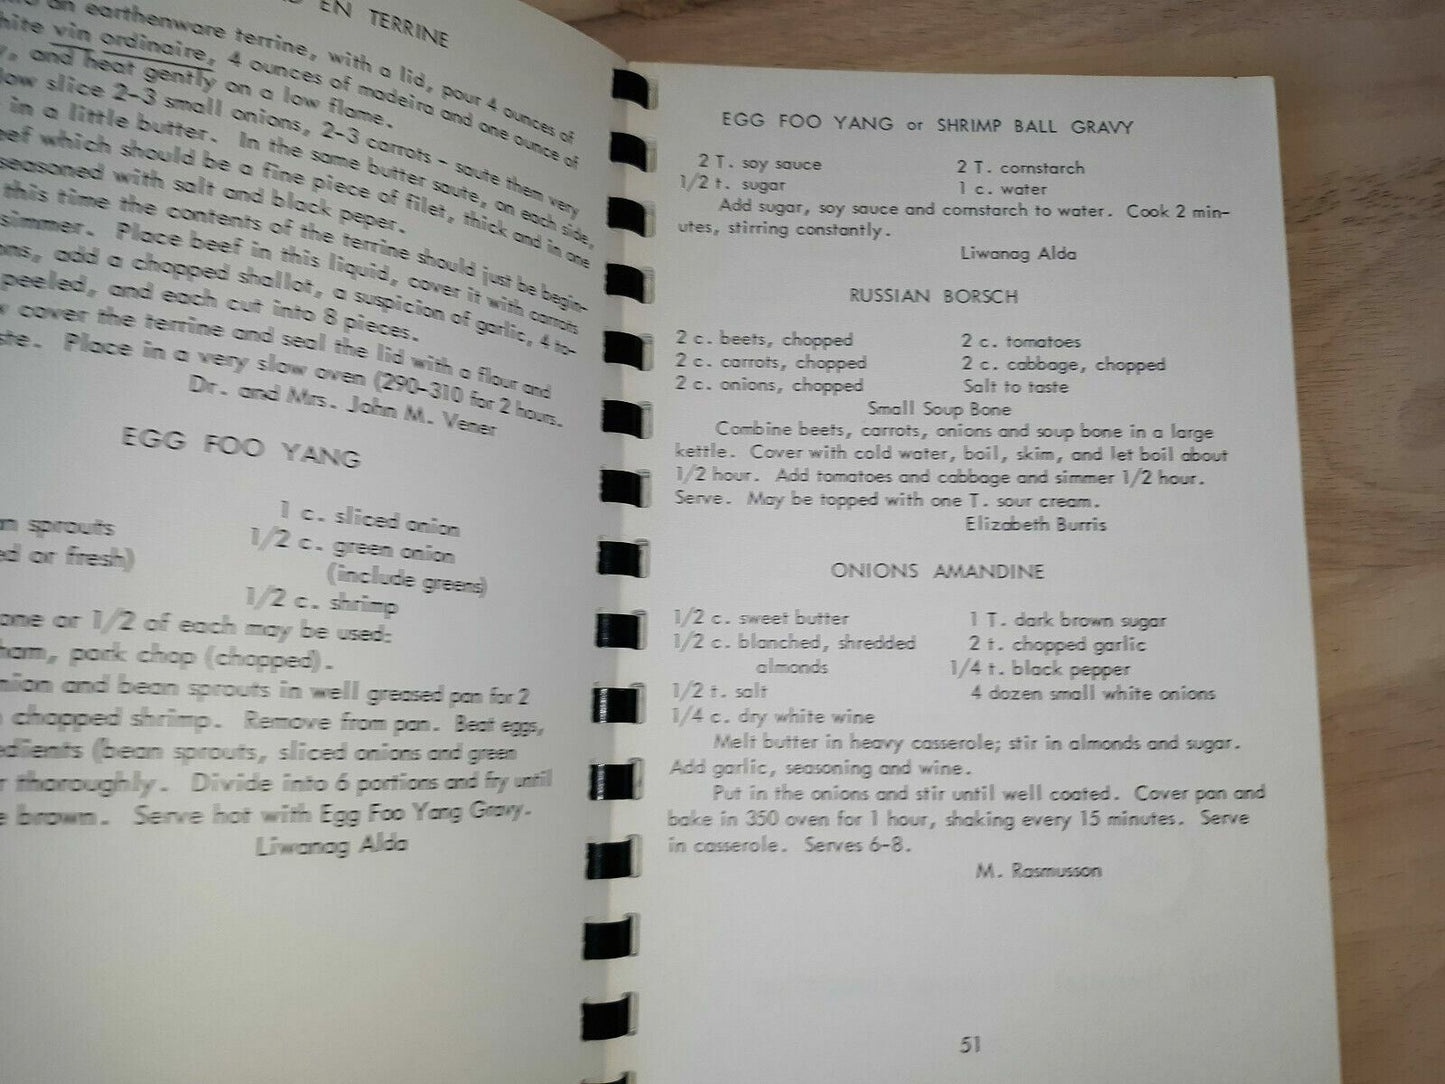 EN TERRINE
an earthenware terrine, with a lid, pour 4 ounces of
vin ordinaire, 4 ounces of madeira and one ounce of
and heat gently on a low flame.
slice 2-3 small onions, 2-3 carrots - saute them very
in a little butter. In the same butter saute, on each side,
which should be a fine piece of filet, thick and in one
seasoned with salt and black peper.
this time the contents of the terrine should just be begin-
simmer. Place beef in this liquid, cover it with carrots
add a chopped shallot, a suspicion of garlic, 4 to-
peeled, and each cut into 8 pieces.
cover the terrine and seal the lid with a flour and
Place in a very slow oven (290-310 for 2 hours.
Dr. and Mrs. John M. Vener
EGG FOO YANG
1 c. sliced onion
sprouts
1/2 c. green onion
or fresh)
(include greens)
1/2 c. shrimp
one or 1/2 of each may be used:
ham, pork chop (chopped).
and bean sprouts in well greased pan for 2
chopped shrimp. Remove from pan. Beat eggs,
(bean sprouts, sliced onions and green
thoroughly. Divide into 6 portions and fry until
brown. Serve hot with Egg Foo Yang Gravy.
Liwanag Alda
EGG FOO YANG or SHRIMP BALL GRAVY
2 T. soy sauce 2 T. cornstarch
1/2 t. sugar 1 c. water
Add sugar, soy sauce and cornstarch to water. Cook 2 min-
utes, stirring constantly.
Liwanag Alda
RUSSIAN BORSCH
2 c. beets, chopped 2 c. tomatoes
2 c. carrots, chopped 2 c. cabbage, chopped
2 c. onions, chopped Salt to taste
Small Soup Bone
Combine beets, carrots, onions and soup bone in a large
kettle. Cover with cold water, boil, skim, and let boil about
1/2 hour. Add tomatoes and cabbage and simmer 1/2 hour.
Serve. May be topped with one T. sour cream.
Elizabeth Burris
ONIONS AMANDINE
1/2 c. sweet butter 1 T. dark brown sugar
1/2 c. blanched, shredded 2 t. chopped garlic
almonds 1/4 t. black pepper
1/2 t. salt 4 dozen small white onions
1/4 c. dry white wine
Melt butter in heavy casserole; stir in almonds and sugar.
Add garlic, seasoning and wine.
Put in the onions and stir until well coated. Cover pan and
bake in 350 oven for 1 hour, shaking every 15 minutes. Serve
in casserole. Serves 6-8.
M. Rasmusson
51